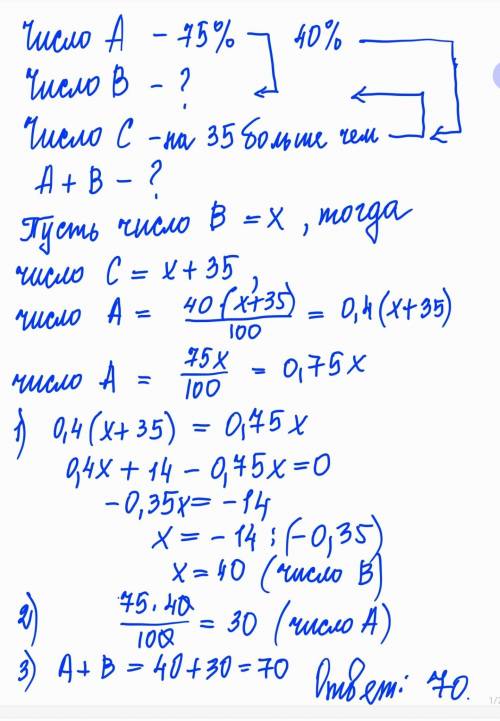 Число А - 75% 40%
Число В - ?
Число С - на 35 больше чем
А + В - ?
Пусть число В = x, тогда
число С = x + 35,
число А = 40(x+35)/100 = 0,4(x+35)
число А = 75x/100 = 0,75x
1) 0,4(x+35) = 0,75x
0,4x + 14 - 0,75x = 0
-0,35x = -14
x = -14 : (-0,35)
x = 40 (число В)
2) 75·40/100 = 30 (число А)
3) А + В = 40 + 30 = 70 Ответ: 70.